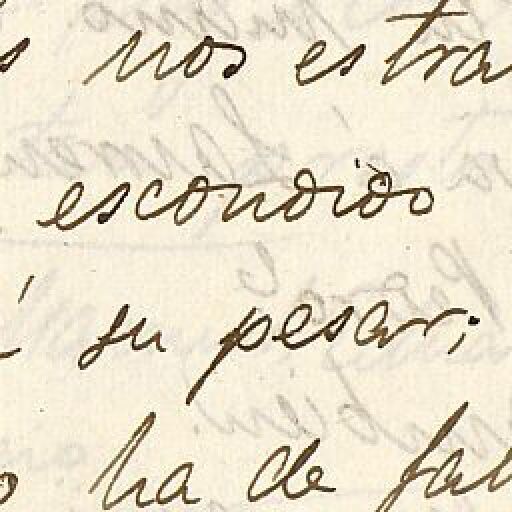 nos estra
escondido
á su pesar;
ha de fal